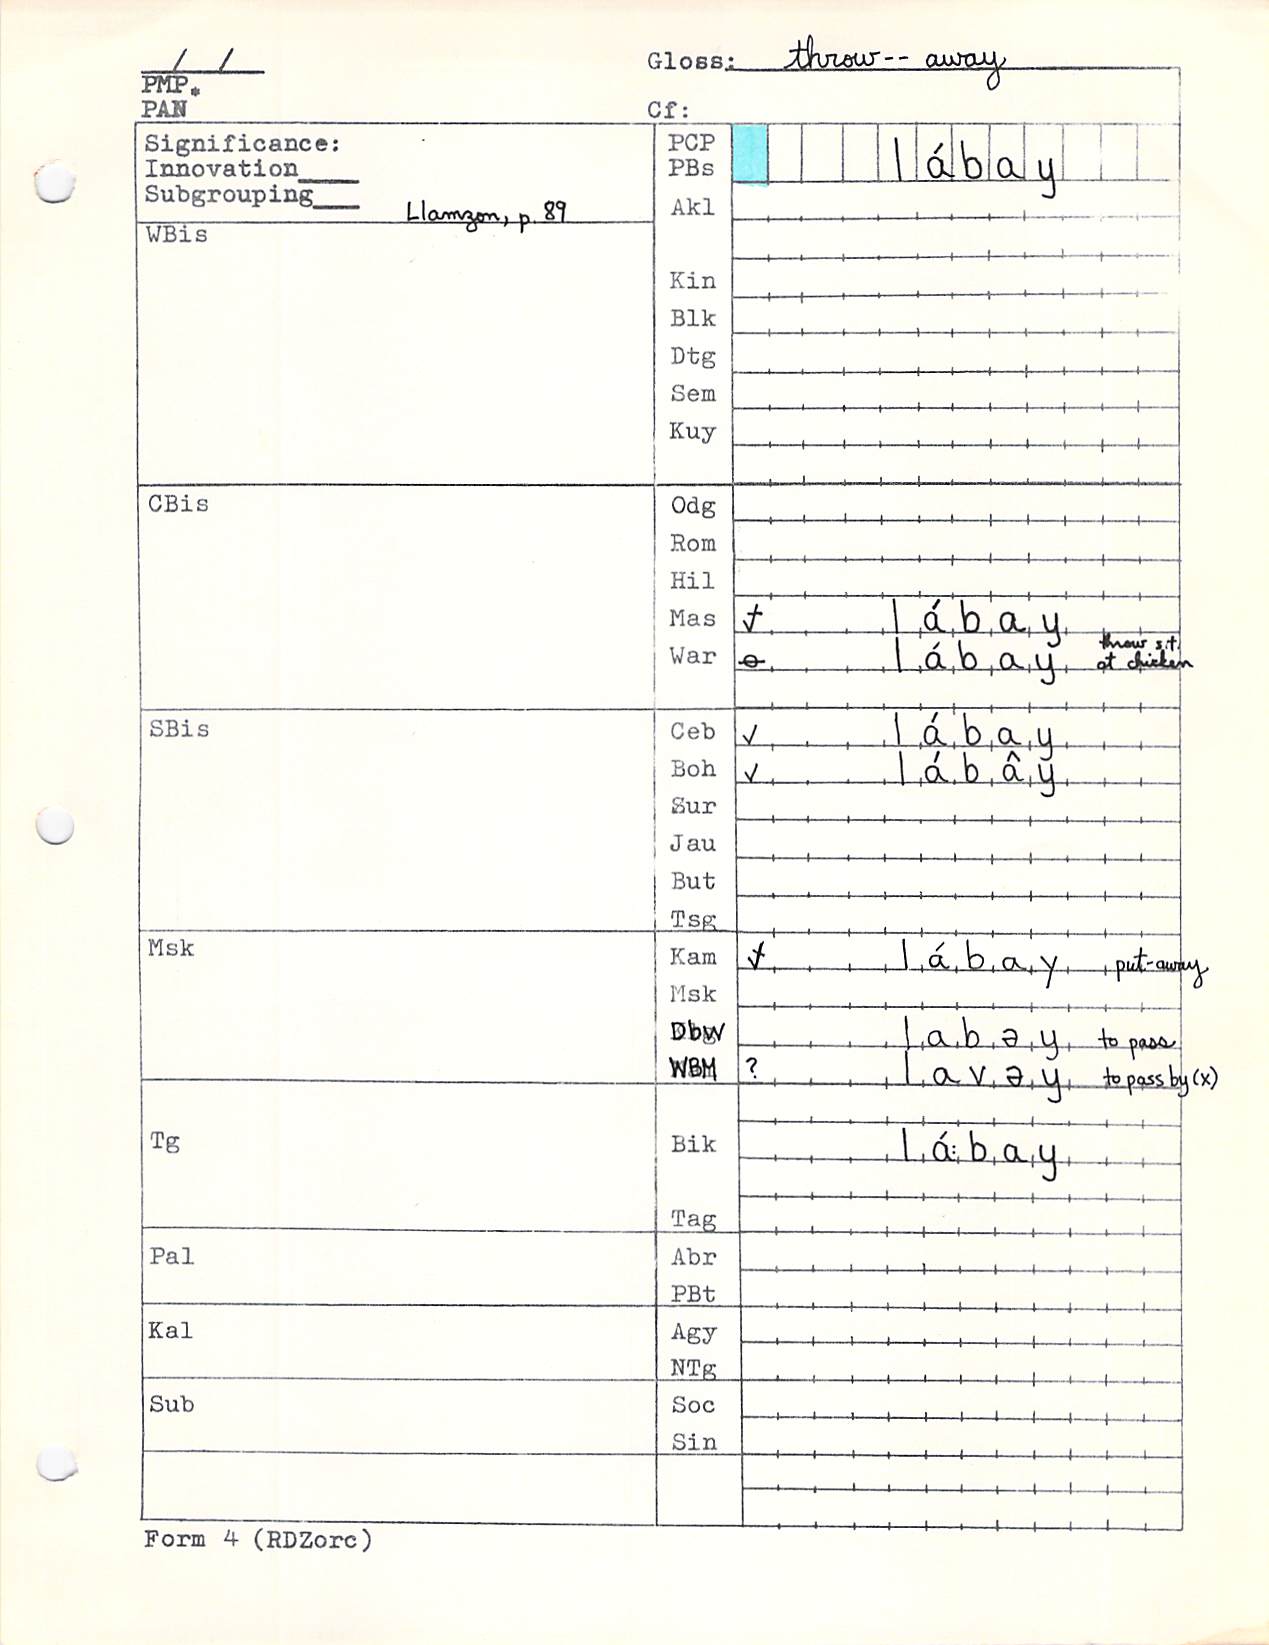 / /
Gloss: throw -- away
PMP*
PAN
Cf:
Significance:
Innovation____
Subgrouping____
Llamzon, p. 89
PCP
PBs lábay
Akl
WBis
Kin
Blk
Dtg
Sem
Kuy
CBis
Odg
Rom
Hil
Mas lábay
War lábay throw s.t. at chicken
SBis
Ceb ✓ lábay
Boh ✓ lábây
Sur
Jau
But
Tsg
Msk
Kam lábay put-away
Msk
DbW labəy to pass
WBM ? lavəy to pass by (x)
Tg
Bik lá:bay
Tag
Pal
Abr
PBt
Kal
Agy
NTg
Sub
Soc
Sin
Form 4 (RDZorc)